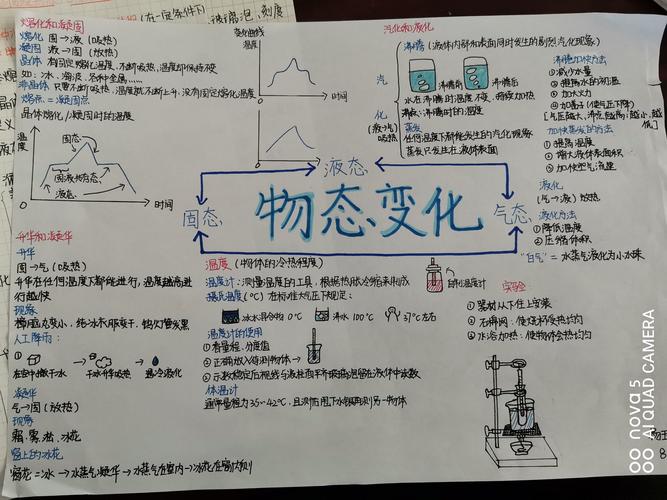 熔化和凝固
熔化 固→液 (吸热)
凝固 液→固 (放热)
晶体 有固定熔化温度,不断吸热,温度却保持不变
如:冰、海波、各种金属……
非晶体 只要不断吸热,温度就不断上升,没有固定熔化温度
熔点=凝固点
晶体熔化/凝固时的温度
温度
固态
固液共存态
液态
时间
0
温度
时间
0
时间
汽化和液化
汽化
(液→气)
吸热
沸腾 (液体内部和表面同时发生的剧烈汽化现象)
沸腾前
沸腾后
水在沸腾时温度不变,持续加热
沸点:沸腾时的温度
蒸发
任何温度下都能发生的汽化现象
蒸发只发生在液体表面
沸腾加快方法
①减少水量
②提高水的初温
③加大火力
④加盖子(使气压下降)
[气压越大,沸点越高;越小,越低]
加快蒸发的方法
①提高温度
②增大液体表面积
③加快空气流速
液化
(气→液) 放热
液化方法
①降低温度
②压缩体积
"白气"=水蒸气液化为小水珠
液态
固态
气态
物态变化
升华和凝华
升华
固→气(吸热)
升华在任何温度下都能进行,温度越高进行越快
现象
樟脑丸变小,结冰衣服变干,钨灯管发黑
人工降雨:
①
→
→
在空中撒干冰
干冰升华吸热
遇冷液化
凝华
气→固 (放热)
现象
霜、雾凇、冰花
窗上的冰花
窗花=冰→水蒸气凝华→水蒸气在室内→冰花在窗内侧
温度 (物体的冷热程度)
温度计:测量温度的工具,根据热胀冷缩来制成
自制温度计
摄氏温度(℃)在标准大气压下规定:
冰水混合物 0℃
沸水 100℃
37℃左右
温度计的使用
①看量程、分度值
②正确放入待测物体→
体温计
通常量程为35~42℃,且测前甩下水银再测另一物体
实验
①器材从下往上安装
②石棉网:使烧杯受热均匀
③水浴加热:使物体受热均匀
nova 5
AI QUAD CAMERA